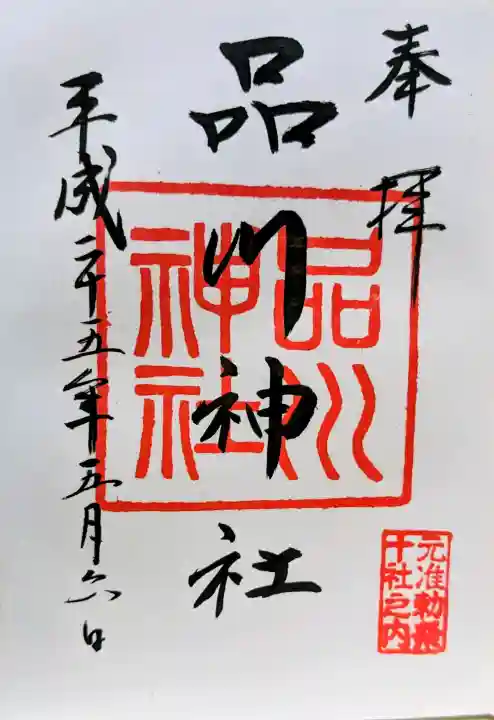 奉拝
品川神社
平成二十五年五月六日
品川
神社
元准勅祭
十社之内